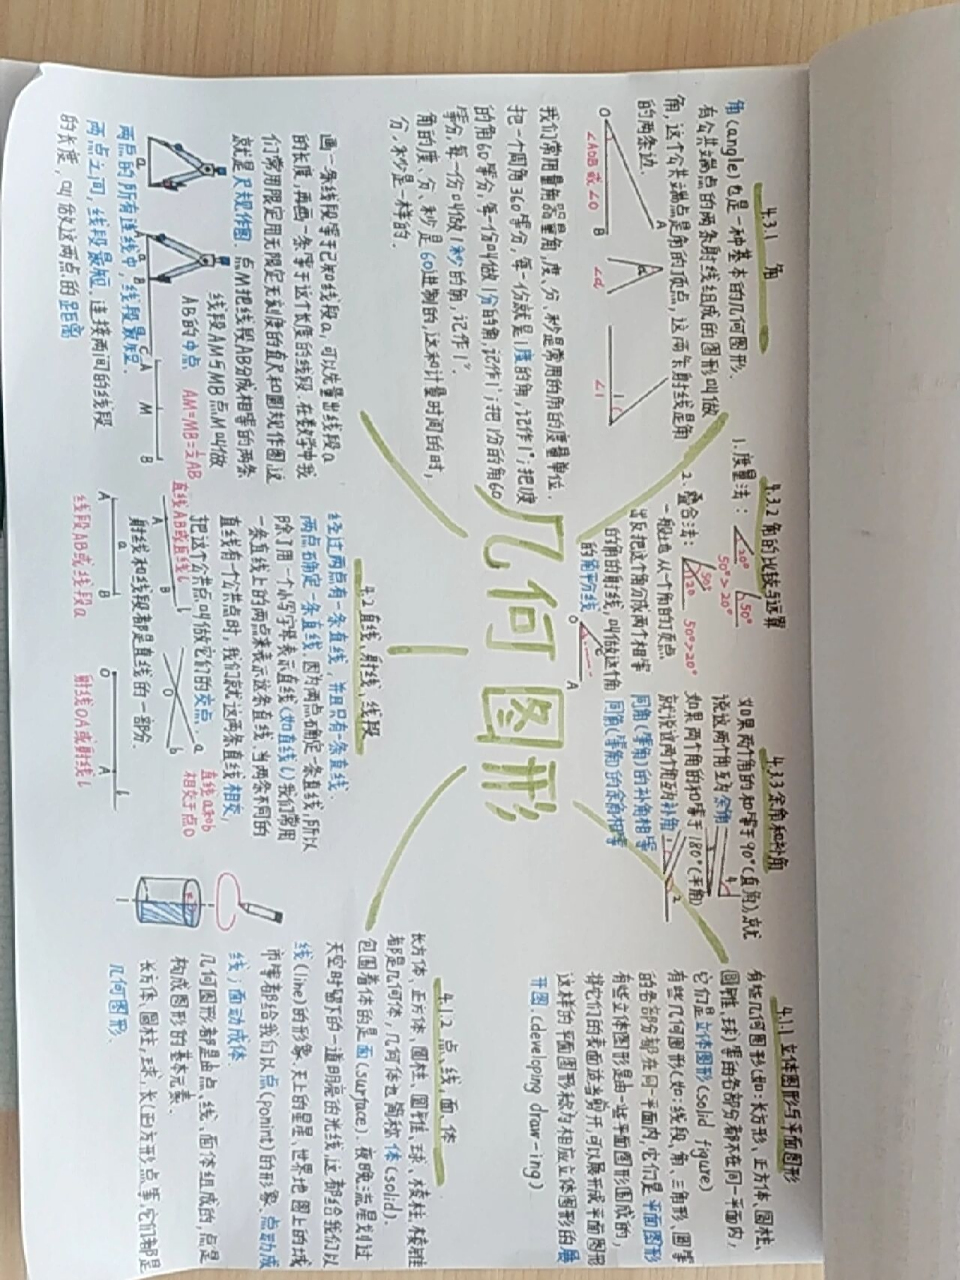 几何图形
4.1.1 立体图形与平面图形
有些几何图形(如:长方形、正方体、圆柱、
圆锥、球)等的各部分都不在同一平面内,
它们是立体图形(solid figure)
有些几何图形(如:线段、角、三角形、圆等
的各部分都在同一平面内,它们是平面图形
有些立体图形是由一些平面图形围成的,
将它们的表面适当剪开,可以展开成平面图形
这样的平面图形称为相应立体图形的展
开图.(developing draw-ing)
4.1.2 点、线、面、体
长方体、正方体、圆柱、圆锥、球、棱柱、棱锥
都是几何体,几何体也简称体(solid).
包围着体的是面(surface).夜晚流星划过
天空时留下的一道明亮的光线,这都给我们以
线(line)的形象.天上的星星、世界地图上的城
市等都给我们以点(ponit)的形象.点动成
线;面动成体.
几何图形都是由点、线、面体组成的,点是
构成图形的基本元素.
长方体、圆柱,球,长(正)方形点等它们都是
几何图形.
4.2直线、射线、线段
经过两点有一条直线,并且只有一条直线.
两点确定一条直线.因为两点确定一条直线,所以
除了用一个小写字母表示直线(如直线l)我们常用
一条直线上的两点来表示这条直线.当两条不同的
直线有一个公共点时,我们就这两条直线相交,
把这个公共点叫做它们的交点.
a
O
b
直线a和b
相交于点O
A
B
l
直线AB或直线l
射线和线段都是直线的一部分.
A
a
B
线段AB或线段a
O
A
l
射线OA或射线l
画一条线段等于已知线段a,可以先量出线段a
的长度,再画一条等于这个长度的线段.在数学中我
们常用限定用无限定无刻度的直尺和圆规作图,这
就是尺规作图.点M把线段AB分成相等的两条
线段AM与MB点M叫做
AB的中点 AM=MB=½AB
a
A
a
B
C
A
M
B
两点的所有连线中,线段最短.
两点之间,线段最短.连接两间的线段
的长度,叫做这两点的距离
4.3.1 角
角(angle)也是一种基本的几何图形.
有公共端点的两条射线组成的图形叫做
角,这个公共端点是角的顶点,这两条射线是角
的两条边.
O
A
B
∠AOB或∠O
α
∠α
1
∠1
我们常用量角器量角,度、分、秒是常用的角的度量单位.
把一个周角360等分,每一份就是1度的角,记作1°;把1度
的角60等分,每一份叫做1分的角,记作1′;把1分的角60
等分,每一份叫做1秒的角,记作1″.
角的度、分、秒是60进制的,这和计量时间的时,
分,秒是一样的.
4.3.2 角的比较与运算
1.度量法:
20°
50°
50°>20°
2.叠合法:
50°
20
50°>20°
一般地,从一个角的顶点
出反把这个角分成两个相等
的角的射线,叫做这个角
的角平分线
O
A
4.3.3余角和补角
如果两个角的和等于90°(直角),就
说这两个角互为余角
如果两个角的和等于180°(平角)
就说这两个角互为补角
同角(等角)的补角相等
同角(等角)的余角相等
4
2